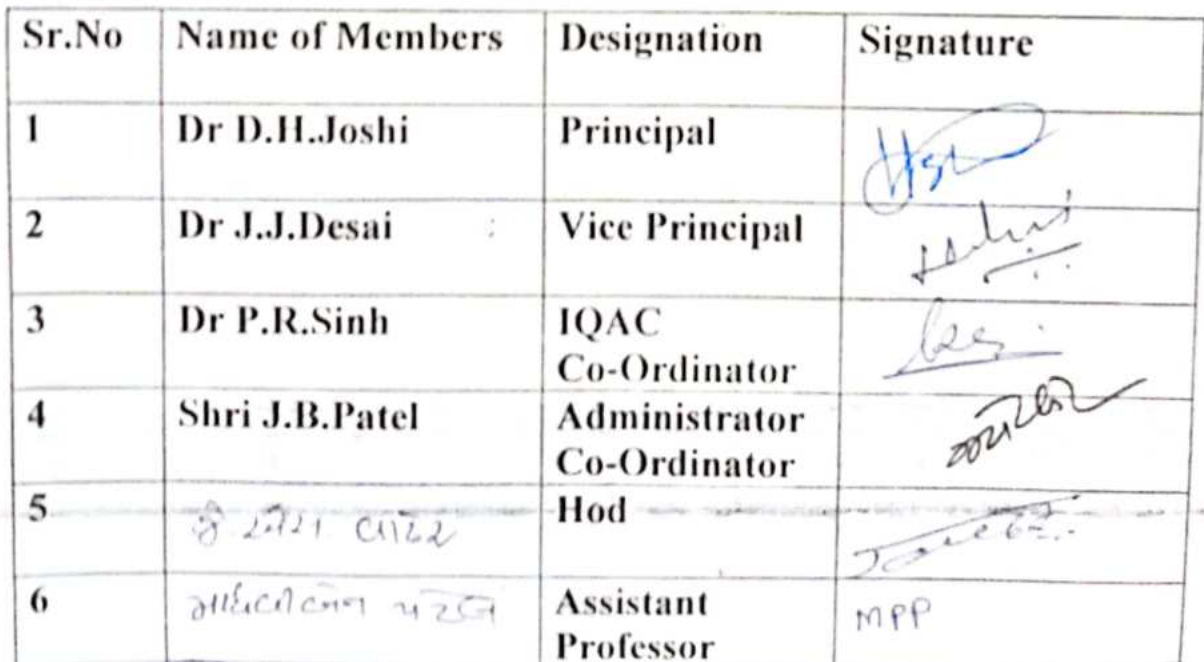 Sr.No Name of Members Designation Signature
1 Dr D.H.Joshi Principal
2 Dr J.J.Desai Vice Principal
3 Dr P.R.Sinh IQAC
Co-Ordinator
4 Shri J.B.Patel Administrator
Co-Ordinator
5 Hod
6 પટેલ Assistant MPP
Professor